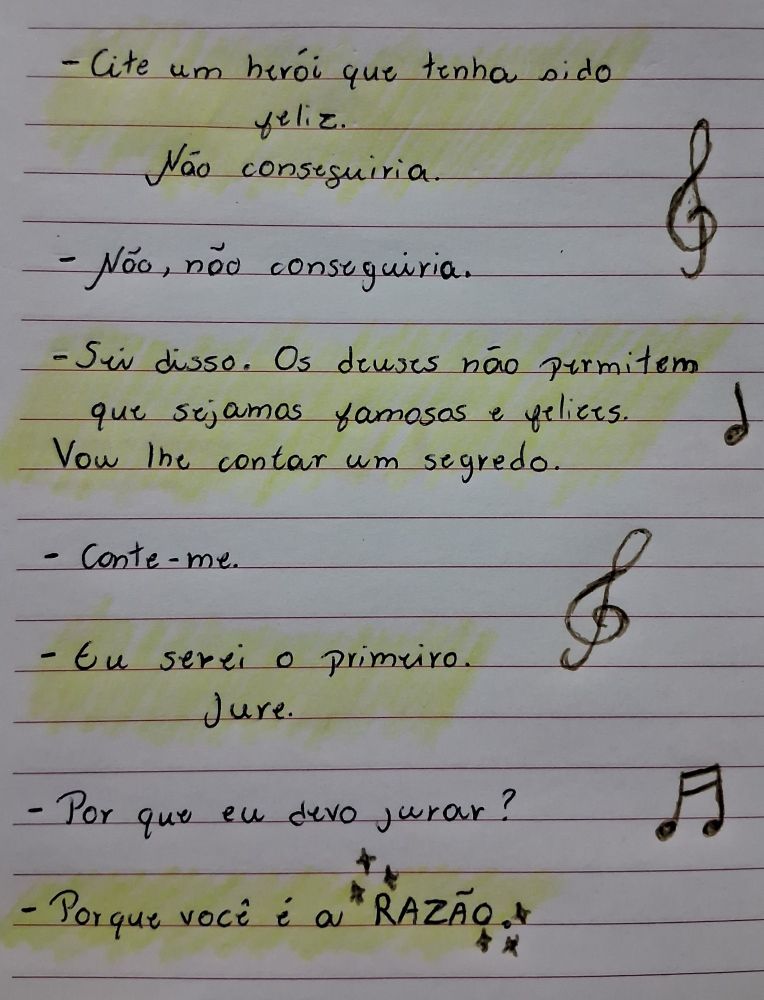 - Cite um herói que tenha sido
feliz.
Não conseguiria.
- Não, não conseguiria.
- Sei disso. Os deuses não permitem
que sejamos famosos e felizes.
Vou lhe contar um segredo.
- Conte-me.
- Eu serei o primeiro.
Jure.
- Por que eu devo jurar?
- Porque você é a RAZÃO.